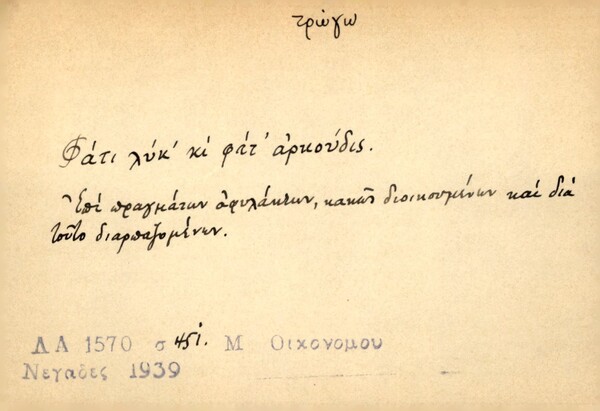 τρώγω
Φάτι λύκ' κὶ φάτ' ἀρκούδις.
Ἐπὶ πραγμάτων ἀφυλάκτων, κακῶς διοικουμένων καὶ διὰ
τοῦτο διαρπαζομένων.
Λ Α 1570 σ 451. Μ Οικονομου
Νεγαδες 1939